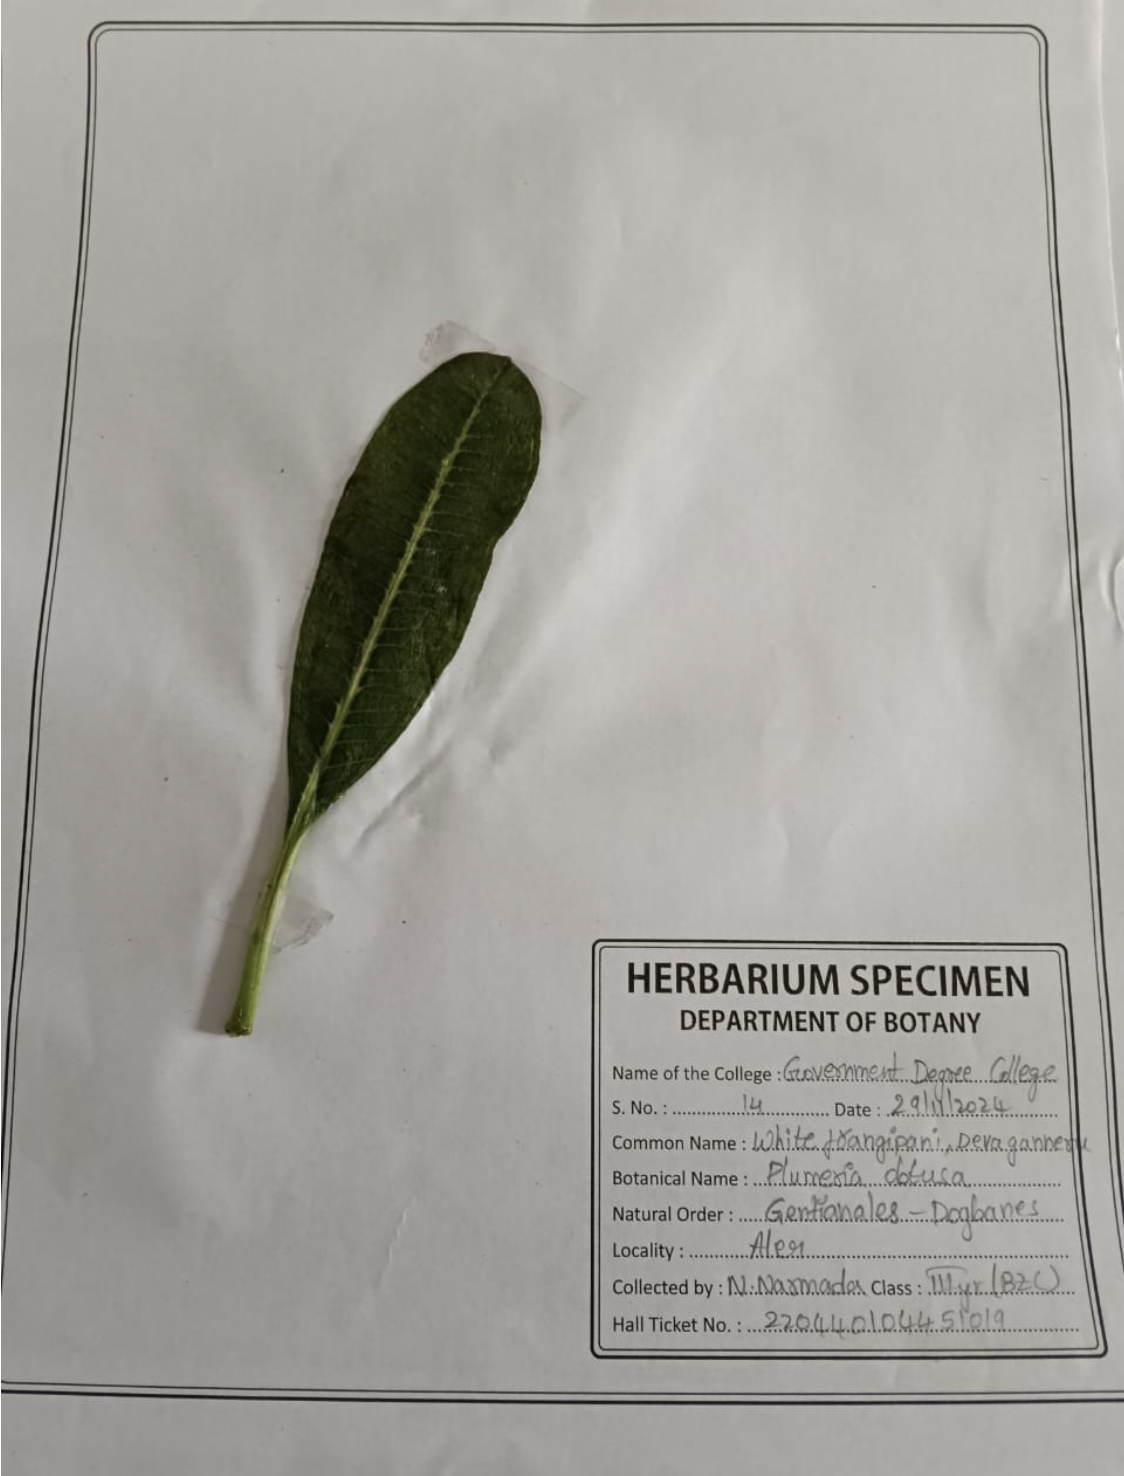 HERBARIUM SPECIMEN
DEPARTMENT OF BOTANY
Name of the College : Government Degree College
S. No. : 14 Date : 29/11/2024
Common Name : White frangipani, Devaganneru
Botanical Name : Plumeria obtusa
Natural Order : Gentianales - Dogbanes
Locality : Aler
Collected by : N. Narmada Class : III yr (BZC)
Hall Ticket No. : 220440104451019